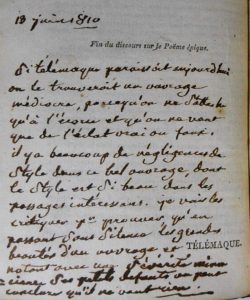 13 juin 1810
Fin du discours sur le Poëme épique.
Si télémaque paraissait aujourdhui
on le trouverait un ouvrage
médiocre, parcequ'on ne s'attache
qu'à l'écorce et qu'on ne veut
que de l'éclat vrai ou faux.
il y a beaucoup de négligences de
style dans ce bel ouvrage, dont
le style est si beau dans les
passages interessans. je vais les
critiquer pr prouver qu'en
passant sous silence les grandes
TÉLÉMAQUE.
beautés d'un ouvrage et
notant avec
ses petits défauts on peut
conclure qu'il ne vaut rien.